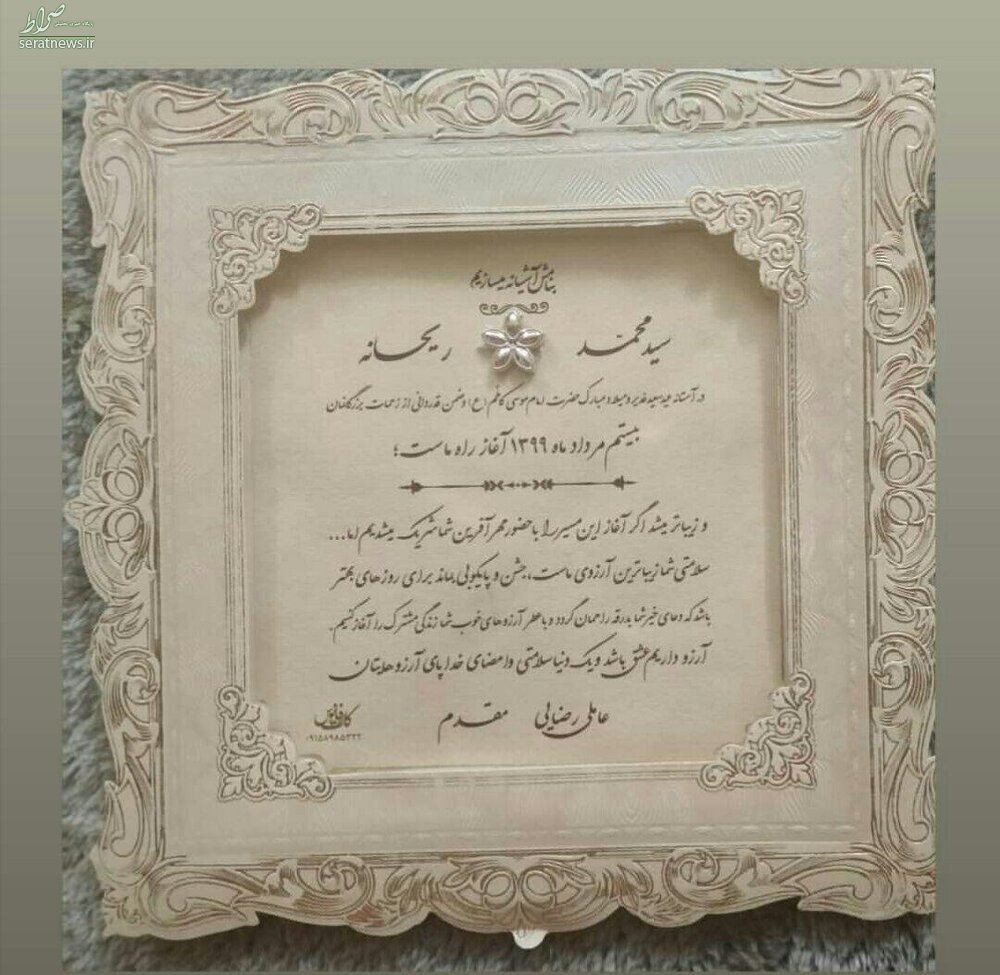 صراط
پایگاه خبری تحلیلی
seratnews.ir
بنامش آشیانه میسازیم
سید محمّد ریحانه
در آستانه عید سعید غدیر و میلاد مبارک حضرت امام موسی کاظم (ع) و ضمن قدردانی از زحمات بزرگانمان
بیستم مرداد ماه ۱۳۹۹ آغاز راه ماست؛
و زیباتر میشد اگر آغاز این مسیر را با حضور مهرآفرین شما شریک میشدیم اما...
سلامتی شما زیباترین آرزوی ماست، جشن و پایکوبی بماند برای روزهای بهتر
باشد که دعای خیر شما بدرقه راهمان گردد و با عطر آرزوهای خوب شما زندگی مشترک را آغاز کنیم.
آرزو داریم عشق باشد و یک دنیا سلامتی و امضای خدا پای آرزوهایتان
عاملی رضایی مقدم
۰۹۱۵۸۹۸۵۳۲۲